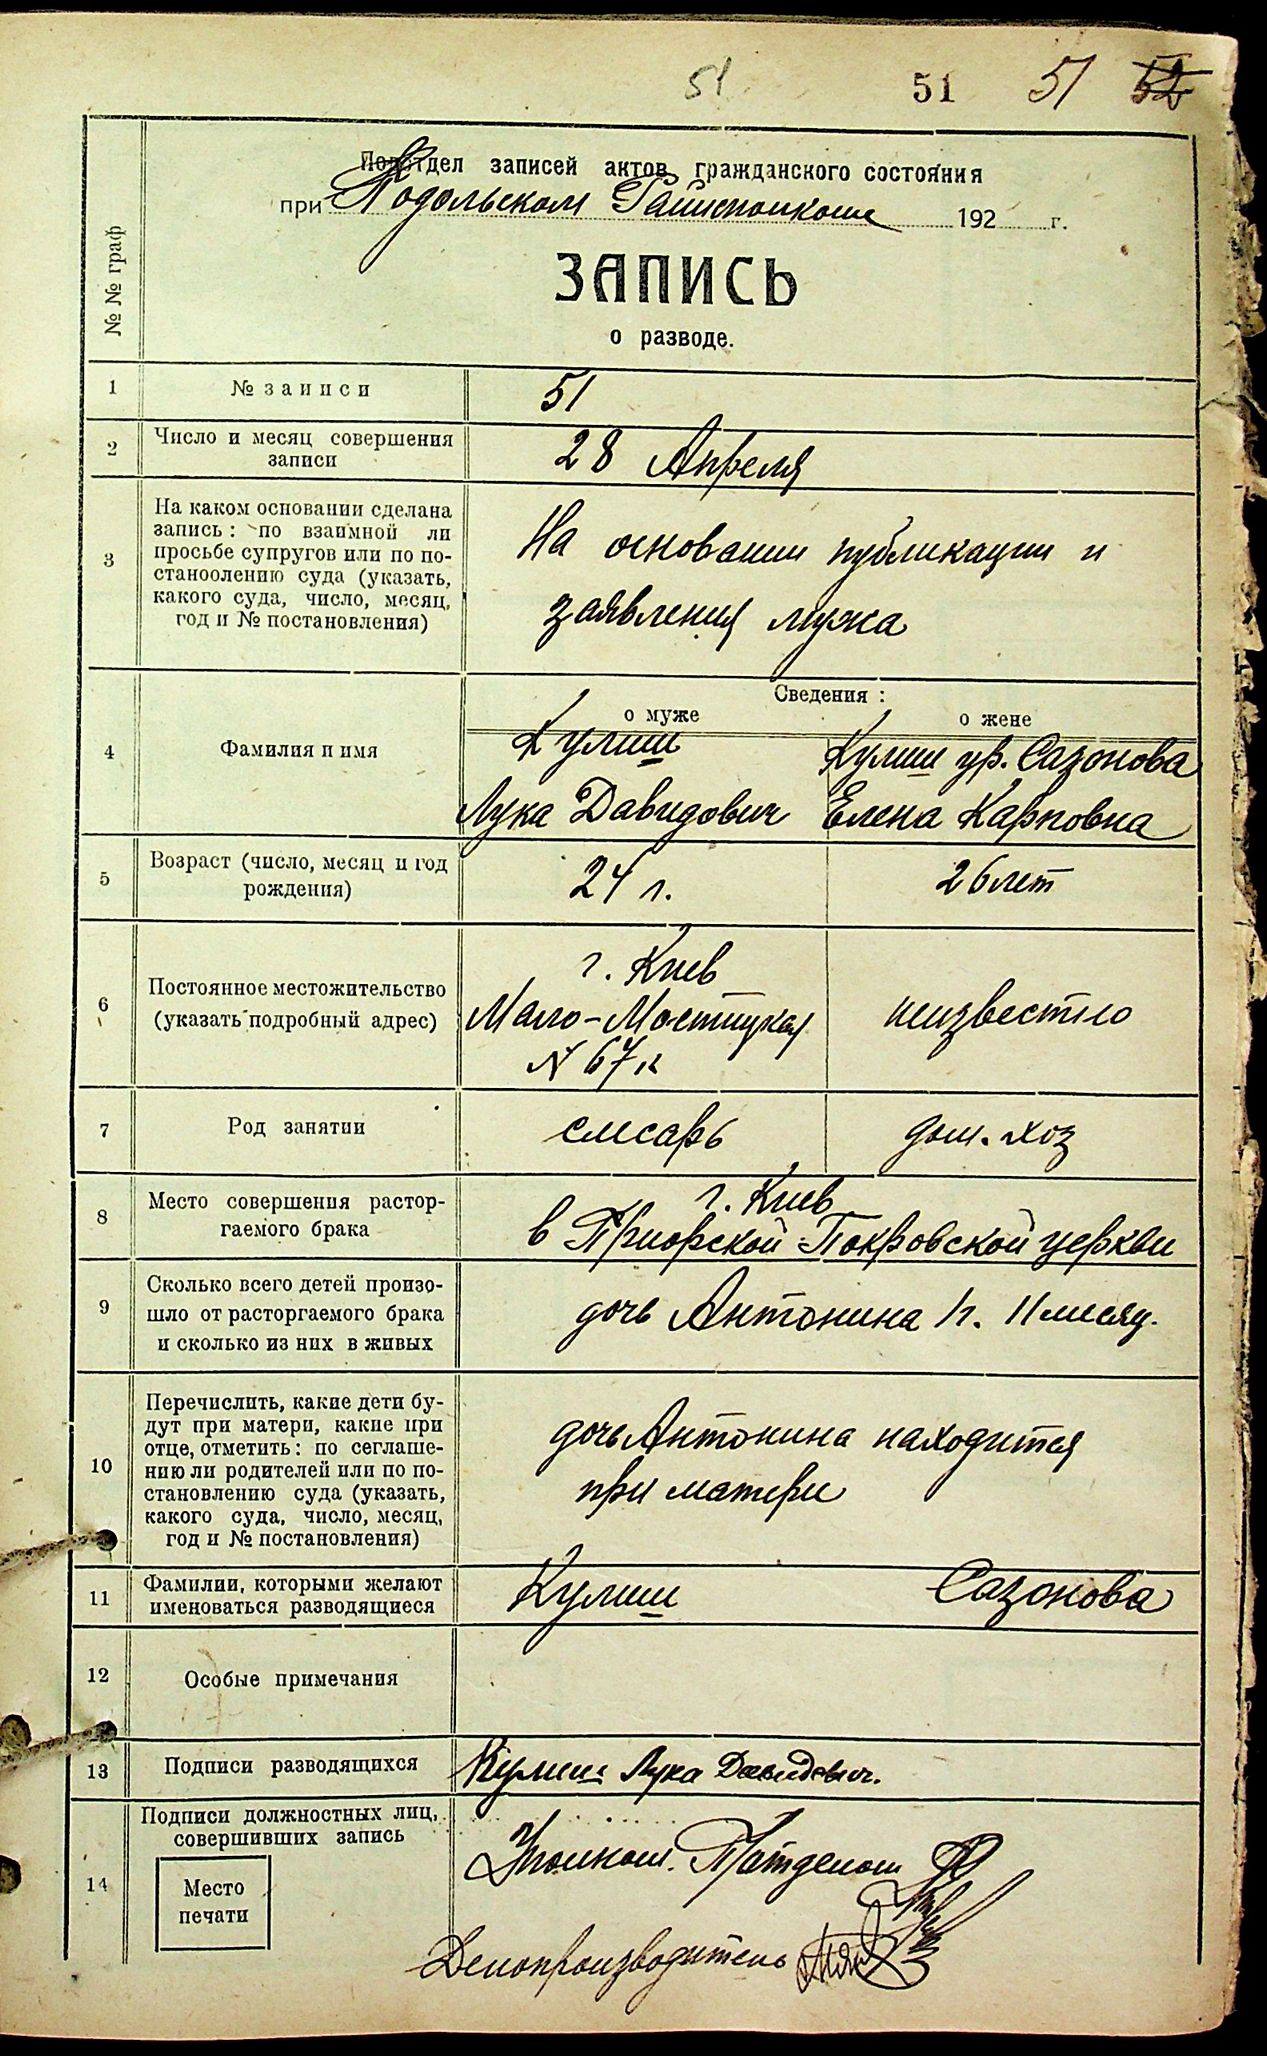 51 51 51 52
Подотдел записей актов гражданского состояния
при Подольском Райисполкоме 192 г.
ЗАПИСЬ
о разводе.
№ № граф
1 № записи 51
2 Число и месяц совершения
записи
28 Апреля
3 На каком основании сделана
запись: по взаимной ли
просьбе супругов или по по-
станоолению суда (указать,
какого суда, число, месяц,
год и № постановления)
На основании публикации и
заявления мужа
Сведения:
о муже о жене
4 Фамилия и имя
Кулиш Кулиш ур. Сазонова
Лука Давидович Елена Карповна
5 Возраст (число, месяц и год
рождения)
24 г. 26 лет
6 Постоянное местожительство
(указать подробный адрес)
г. Киев
Мало-Мостицкая
N 67а
неизвестно
7 Род занятии слесарь дом. хоз
8 Место совершения растор-
гаемого брака
г. Киев
в Приорской Покровской церкви
9 Сколько всего детей произо-
шло от расторгаемого брака
и сколько из них в живых
дочь Антонина 1 г. 11 месяц.
10 Перечислить, какие дети бу-
дут при матери, какие при
отце, отметить: по сеглаше-
нию ли родителей или по по-
становлению суда (указать,
какого суда, число, месяц,
год и № постановления)
дочь Антонина находится
при матери
11 Фамилии, которыми желают
именоваться разводящиеся
Кулиш Сазонова
12 Особые примечания
13 Подписи разводящихся Кулиш Лука Давидович.
14 Подписи должностных лиц,
совершивших запись
Место
печати
Делопроизводитель